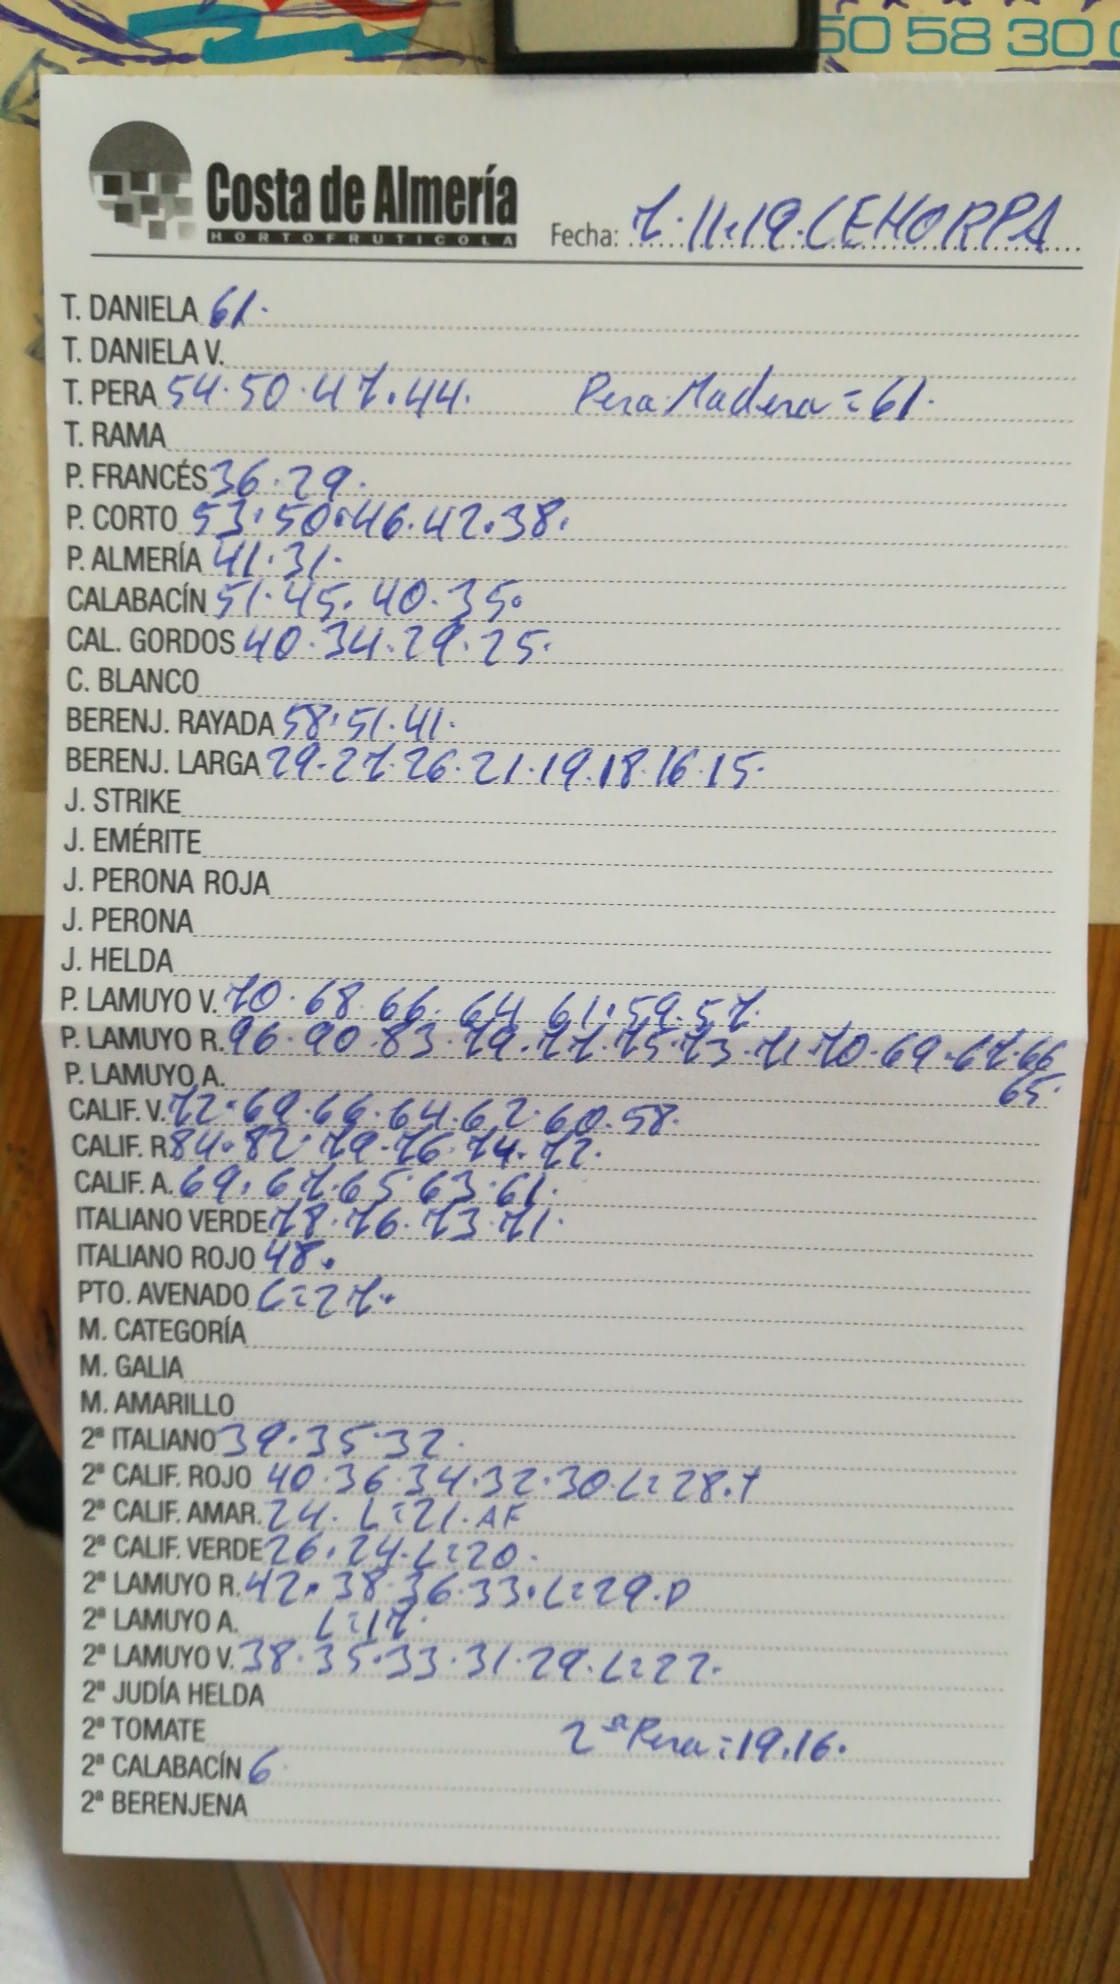 50 58 30
Costa de Almería
HORTOFRUTICOLA
Fecha: 7.11.19.CEHORPA
T. DANIELA 61.
T. DANIELA V.
T. PERA 54.50.47.44. Pera Madera=61.
T. RAMA
P. FRANCÉS 36.29.
P. CORTO 53.50.46.42.38.
P. ALMERÍA 41.31.
CALABACÍN 51.45.40.35.
CAL. GORDOS 40.34.29.25.
C. BLANCO
BERENJ. RAYADA 58.51.41.
BERENJ. LARGA 29.27.26.21.19.18.16.15.
J. STRIKE
J. EMÉRITE
J. PERONA ROJA
J. PERONA
J. HELDA
P. LAMUYO V. 70.68.66.64.61.59.57.
P. LAMUYO R. 96.90.83.79.77.75.73.71.70.69.67.66
65.
P. LAMUYO A.
CALIF. V. 72.69.66.64.62.60.58.
CALIF. R 84.82.79.76.74.72.
CALIF. A. 69.67.65.63.61.
ITALIANO VERDE 78.76.73.71.
ITALIANO ROJO 48.
PTO. AVENADO L=27.
M. CATEGORÍA
M. GALIA
M. AMARILLO
2ª ITALIANO 39.35.32.
2ª CALIF. ROJO 40.36.34.32.30.L=28.T
2ª CALIF. AMAR. 24. L=21.AF
2ª CALIF. VERDE 26.24.L=20.
2ª LAMUYO R. 42.38.36.33.L=29.D
2ª LAMUYO A. L=17.
2ª LAMUYO V. 38.35.33.31.29.L=22.
2ª JUDÍA HELDA
2ª TOMATE 2ª Pera=19.16.
2ª CALABACÍN 6
2ª BERENJENA